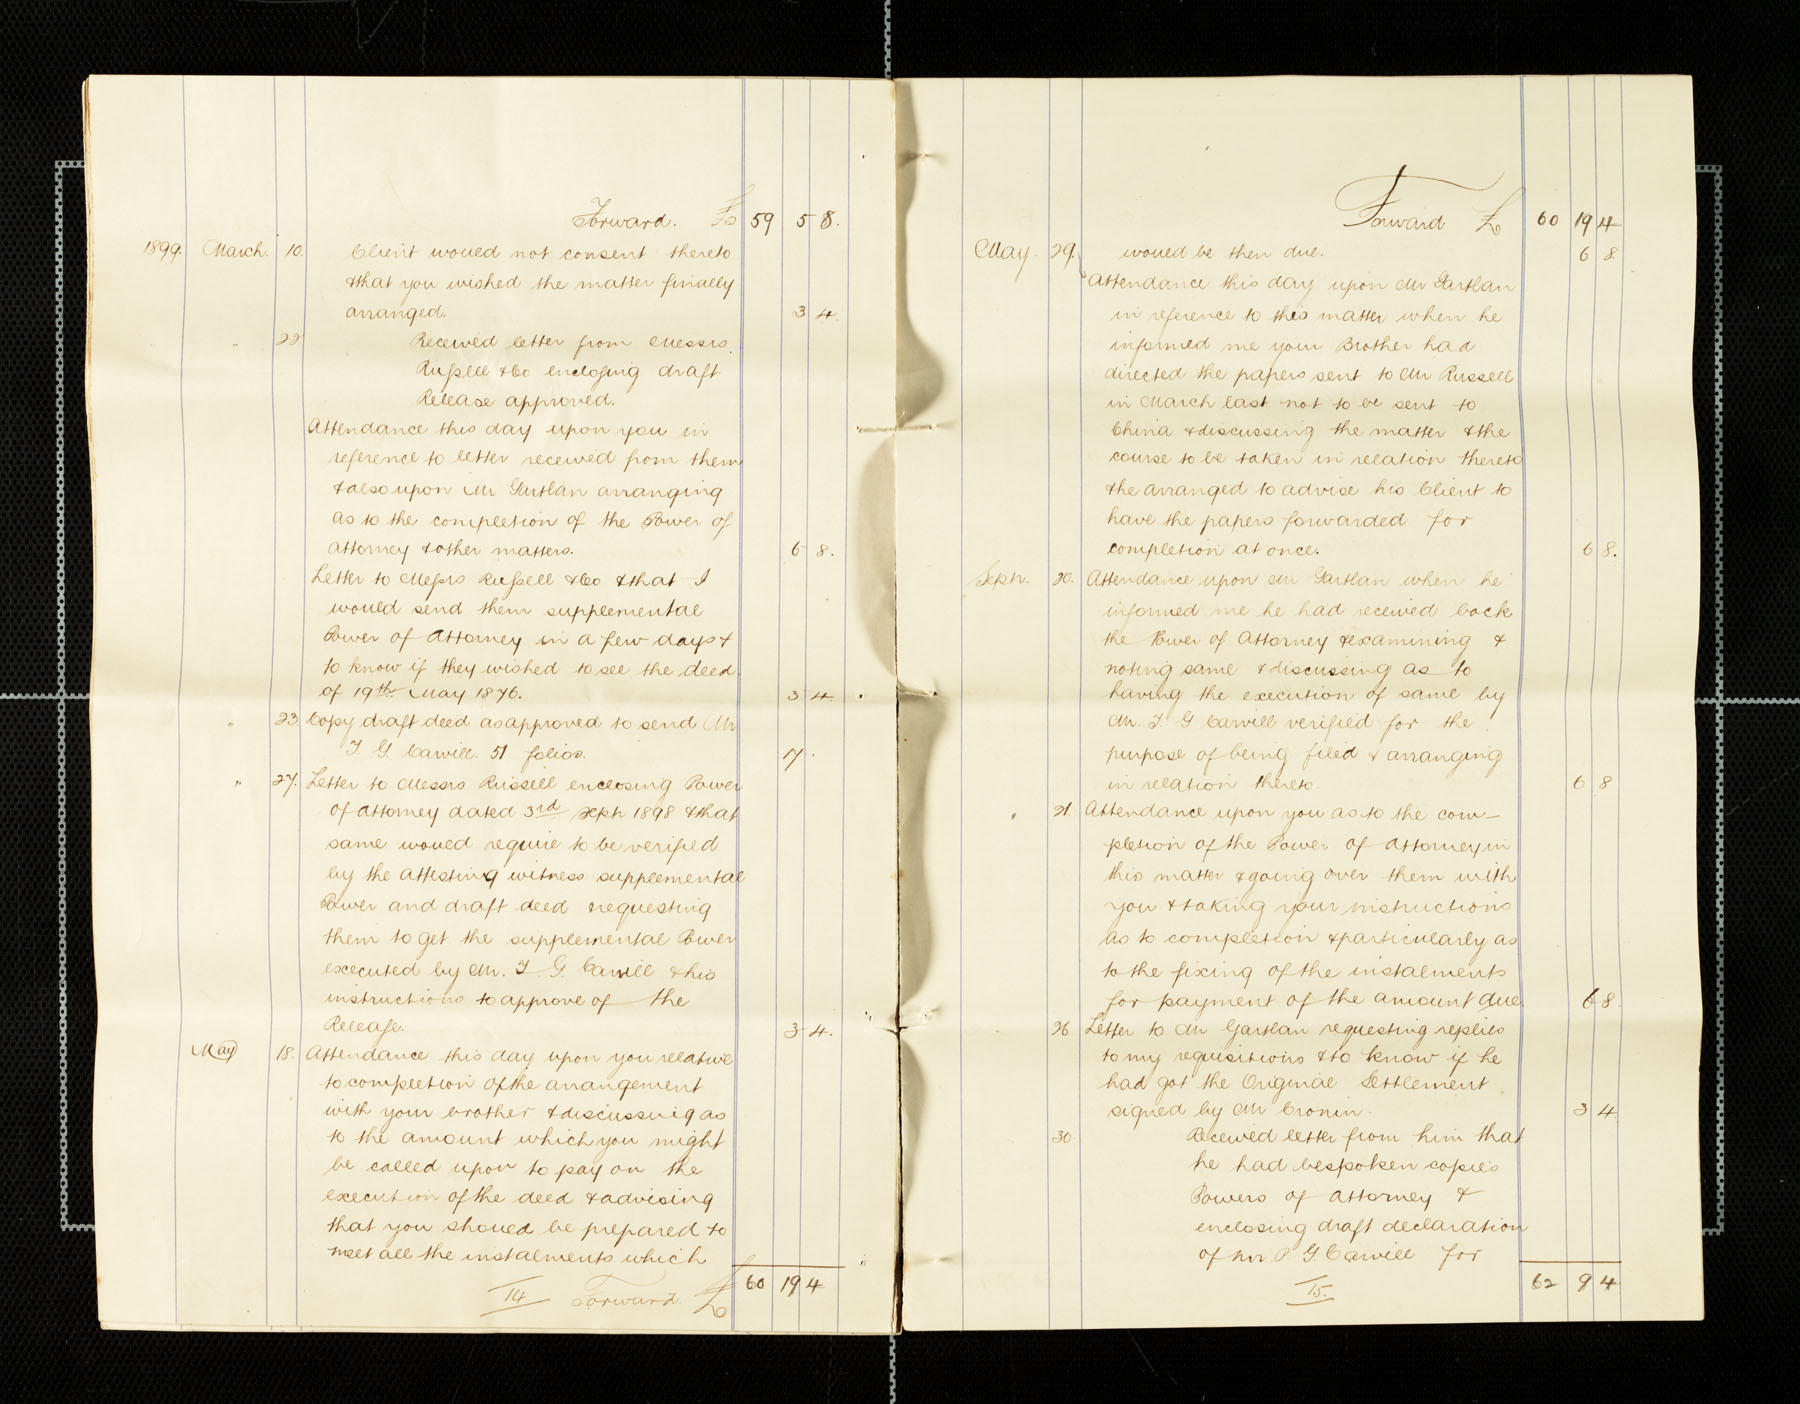 Forward. £ 59 5 8.
1899. March. 10. Client would not consent thereto
& that you wished the matter finally
arranged. 3 4.
" 22 Received letter from Messrs.
Russell & Co enclosing draft
Release approved.
Attendance this day upon you in
reference to letter received from them
& also upon Mr Gartlan arranging
as to the completion of the Power of
Attorney & other matters. 6 8.
Letter to Messrs Russell & Co & that I
would send them supplemental
Power of Attorney in a few days &
to know if they wished to see the deed
of 19th May 1876. 3 4.
" 23. Copy draft deed as approved to send Mr
T. G. Carvill. 51 folios. 17.
" 27. Letter to Messrs Russell enclosing Power
of Attorney dated 3rd Sept 1898 & that
same would require to be verified
by the attesting witness supplemental
Power and draft deed & requesting
them to get the supplemental Power
executed by Mr. T G. Carvill & his
instructions to approve of the
Release. 3 4.
May 18. Attendance this day upon you relative
to completion of the arrangement
with your brother & discussing as
to the amount which you might
be called upon to pay on the
execution of the deed & advising
that you should be prepared to
meet all the instalments which
14 Forward. £ 60 19 4
Forward £ 60 19 4
May. 29. would be then due. 6 8.
Attendance this day upon Mr Gartlan
in reference to this matter when he
informed me your Brother had
directed the papers sent to Mr Russell
in March last not to be sent to
China & discussing the matter & the
course to be taken in relation thereto
& he arranged to advise his Client to
have the papers forwarded for
completion at once. 6 8.
Sept. 20. Attendance upon Mr Gartlan when he
informed me he had received back
the Power of Attorney & examining &
noting same & discussing as to
having the execution of same by
Mr. T G Carvill verified for the
purpose of being filed & arranging
in relation thereto. 6 8
" 21. Attendance upon you as to the com-
pletion of the Power of Attorney in
this matter & going over them with
you & taking your instructions
as to completion & particularly as
to the fixing of the instalments
for payment of the amount due. 6 8.
26 Letter to Mr Gartlan requesting replies
to my requisitions & to know if he
had got the Original Settlement
signed by Mr Cronin. 3 4.
30. Received letter from him that
he had bespoken copies
Powers of Attorney &
enclosing draft declaration
of Mr P. G. Carvill for
15. 62 9 4